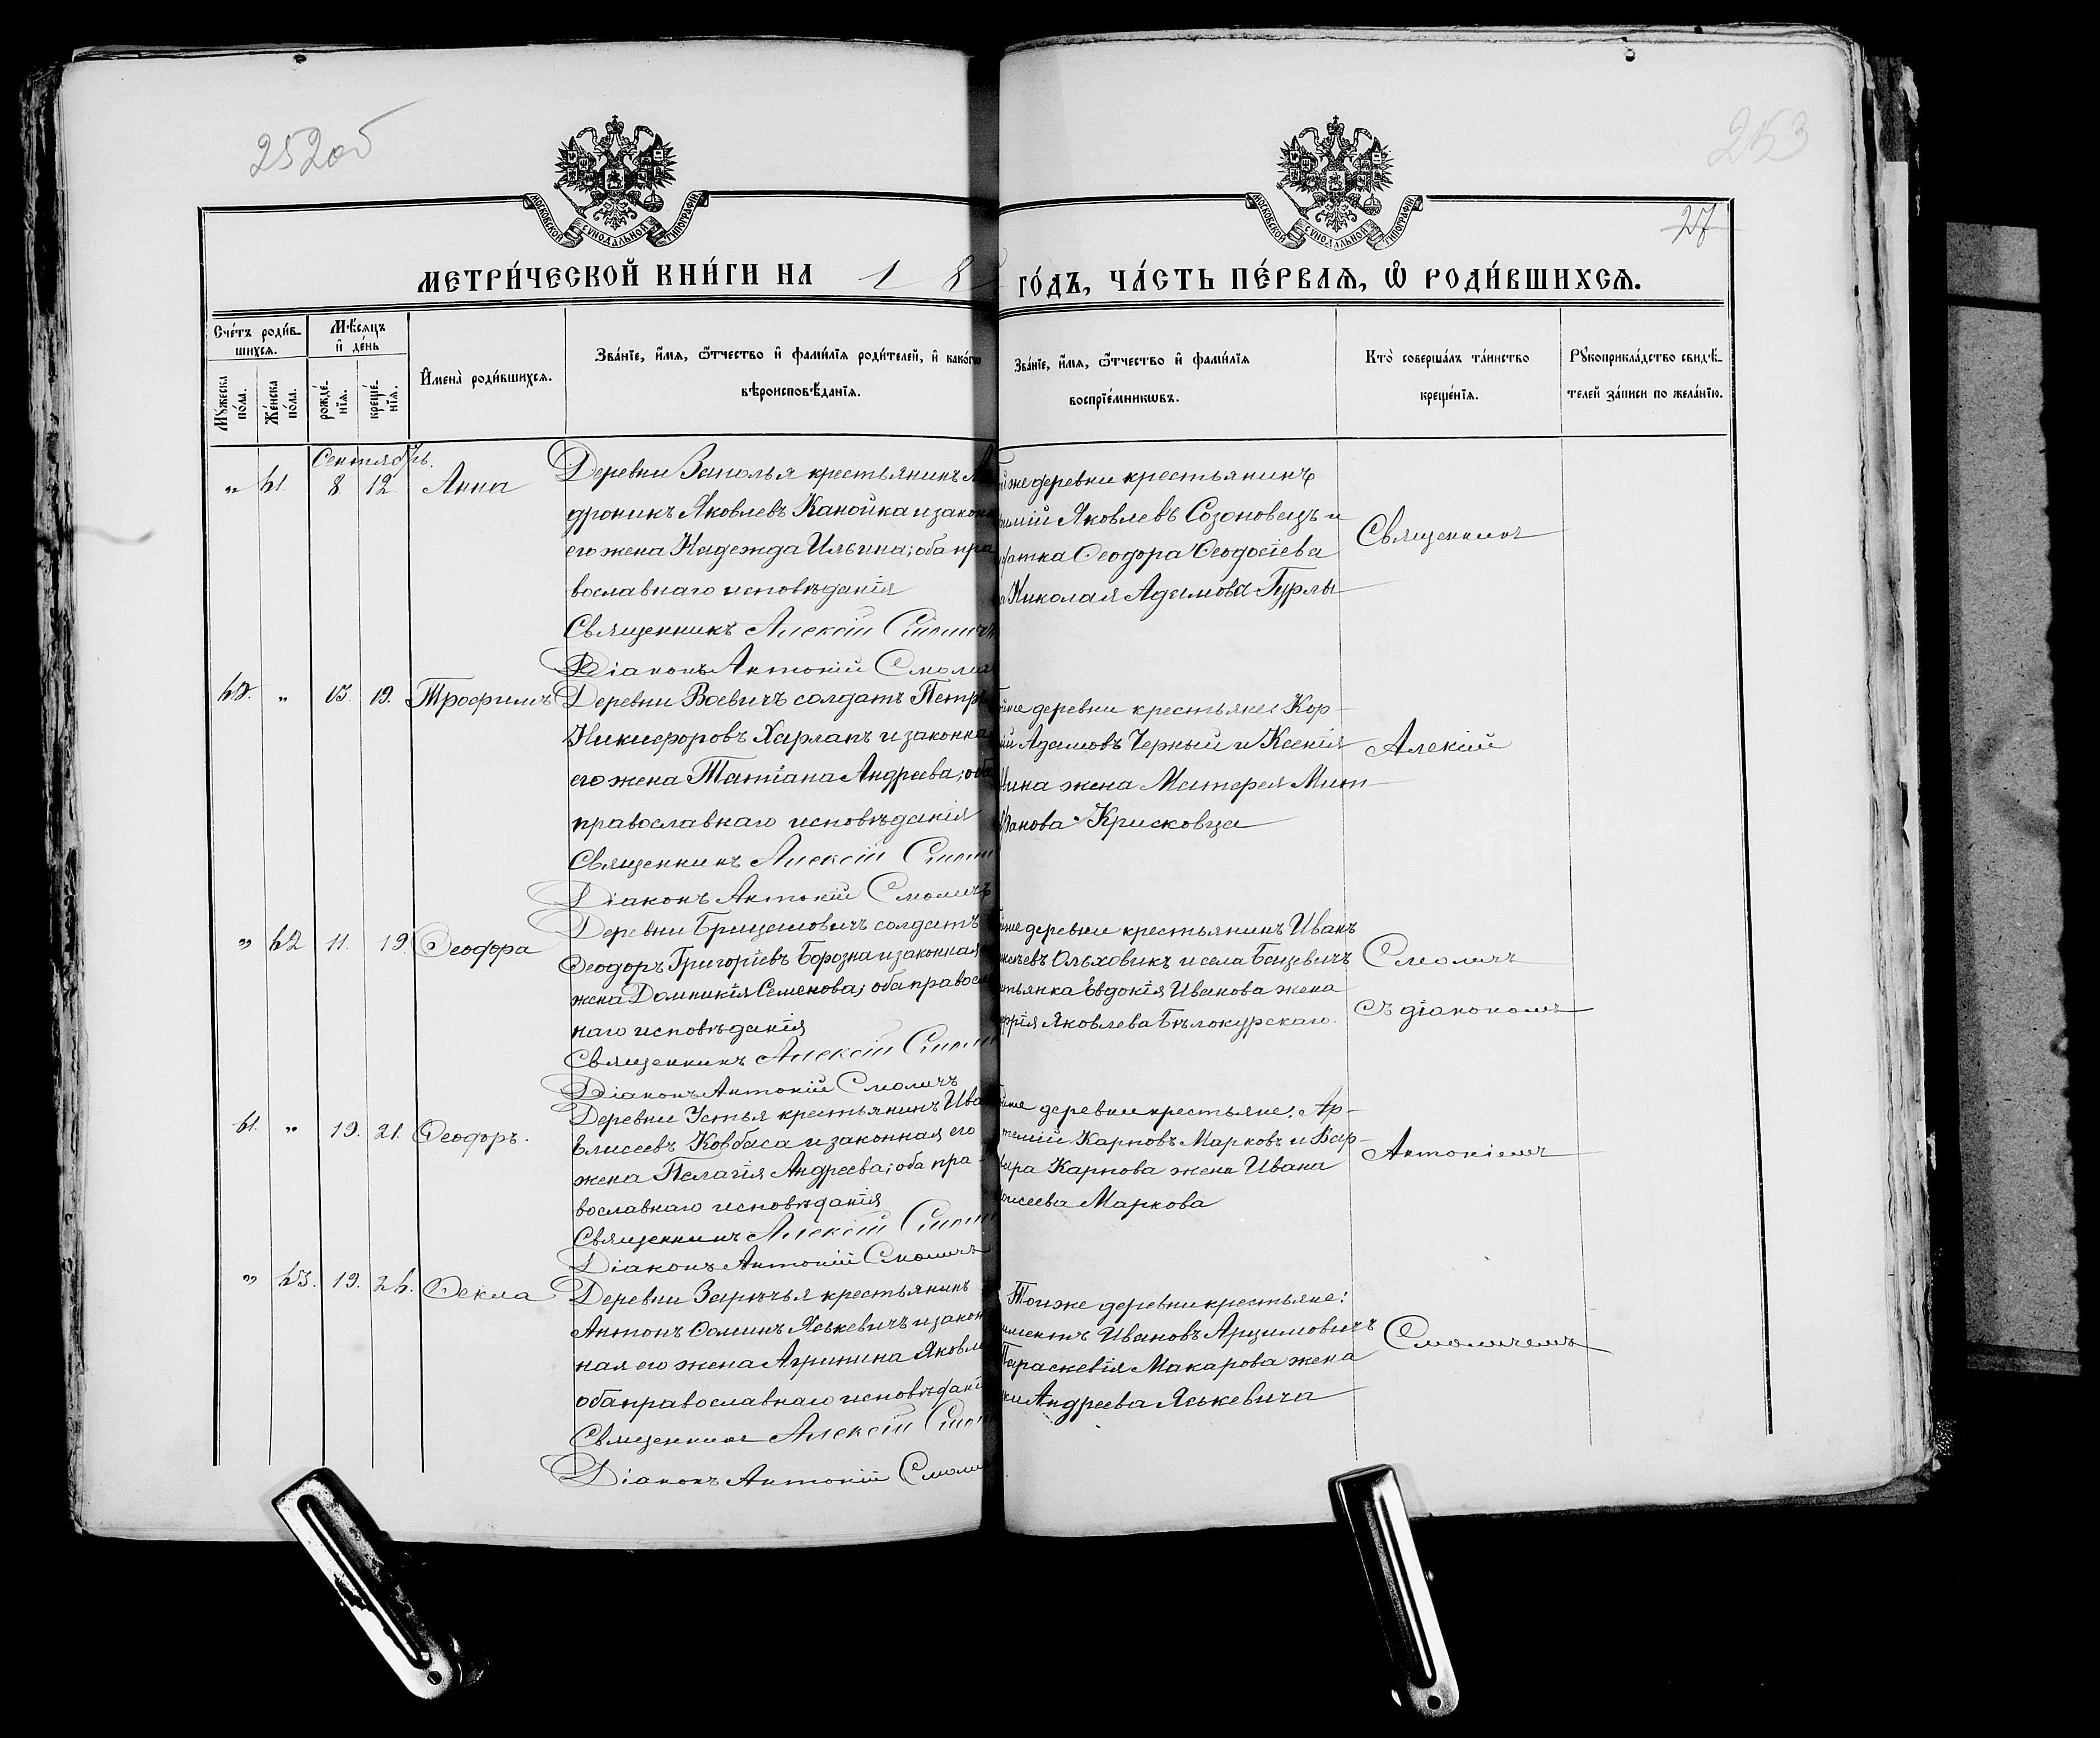 252об
253
27
МОСКОВСКОЙ СУНОДАЛЬНОЙ ТИПОГРАФИИ
МОСКОВСКОЙ СУНОДАЛЬНОЙ ТИПОГРАФИИ
МЕТРИ́ЧЕСКОЙ КНИ́ГИ НА 1 8
ГО́ДЪ, ЧА́СТЬ ПЕ́РВАѦ, Ѡ҆ РОДИ́ВШИХСѦ.
Сче́тъ роди́в-
шихсѧ.
Мѣ́сяцъ
и҆ де́нь
Му́жеска по́ла.
Же́нска по́ла.
рожде́нїѧ.
креще́нїѧ.
И҆мена̀ роди́вшихсѧ.
Зва́нїе, и҆́мѧ, ѻ҆́тчество и҆ фами́лїѧ роди́телей, и҆ како́гѡ
вѣроисповѣ́данїѧ.
Зва́нїе, и҆́мѧ, ѻ҆́тчество и҆ фами́лїѧ
воспрїе́мникѡвъ.
Кто̀ соверша́лъ та́инство
креще́нїѧ.
Рꙋкоприкла́дство свидѣ́-
телей за́писи по жела́нїю.
Сентябрь.
" 8 12. Анна
Деревни Заполья крестьянинъ
дроникъ Яковлевъ Канойка и закон
его жена Надежда Ильина; оба пра
вославнаго исповѣданія
Священникъ Алексій
Діаконъ Антоній
же деревни крестьянинъ
Яковлевъ Созоновецъ и
Ѳеодора Ѳеодосіева
Николая Адамова Гурлы
Священникъ
" 19. Трофимъ
Деревни Воевичъ солдатъ Петръ
Никифоровъ Харланъ и законна
его жена Татіана Андреева; оба
православнаго исповѣданія
Священникъ Алексій
Діаконъ Антоній Смоличъ
деревни крестьяне: Кор-
Адамовъ Черный и Ксенія
жена Матфея Мит-
Крисковца
Алексій
" 11. 19. Ѳеодора
Деревни Грицевичъ солдатъ
Ѳеодоръ Григоріевъ Борозна и законная
жена Домникія Семенова; оба правосл
наго исповѣданія
Священникъ Алексій
Діаконъ Антоній Смоличъ
деревни крестьянинъ Иванъ
Ольховикъ и села Бацевичъ
Евдокія Иванова жена
Яковлева Бѣлокурскаго.
Смоличъ
съ діакономъ
" 19. 21. Ѳеодоръ.
Деревни Устья крестьянинъ Ива
Елисеевъ Ковбаса и законная его
жена Пелагія Андреева; оба пра-
вославнаго исповѣданія
Священникъ Алексій
Діаконъ Антоній Смоличъ
деревни крестьяне: Ар-
темій Карповъ Марковъ и Вар-
Карпова жена Ивана
Маркова
Антоніемъ
" 19. Ѳекла
Деревни Зарѣчья крестьянинъ
Антонъ Ѳоминъ Яськевичъ и закон
ная его жена Агрипина Яковле
оба православнаго исповѣданія
Священникъ Алексій
Діаконъ Антоній
Тойже деревни крестьяне:
Ивановъ Арцимовичъ
Параскевія Макарова жена
Андреева Яськевича
Смоличемъ